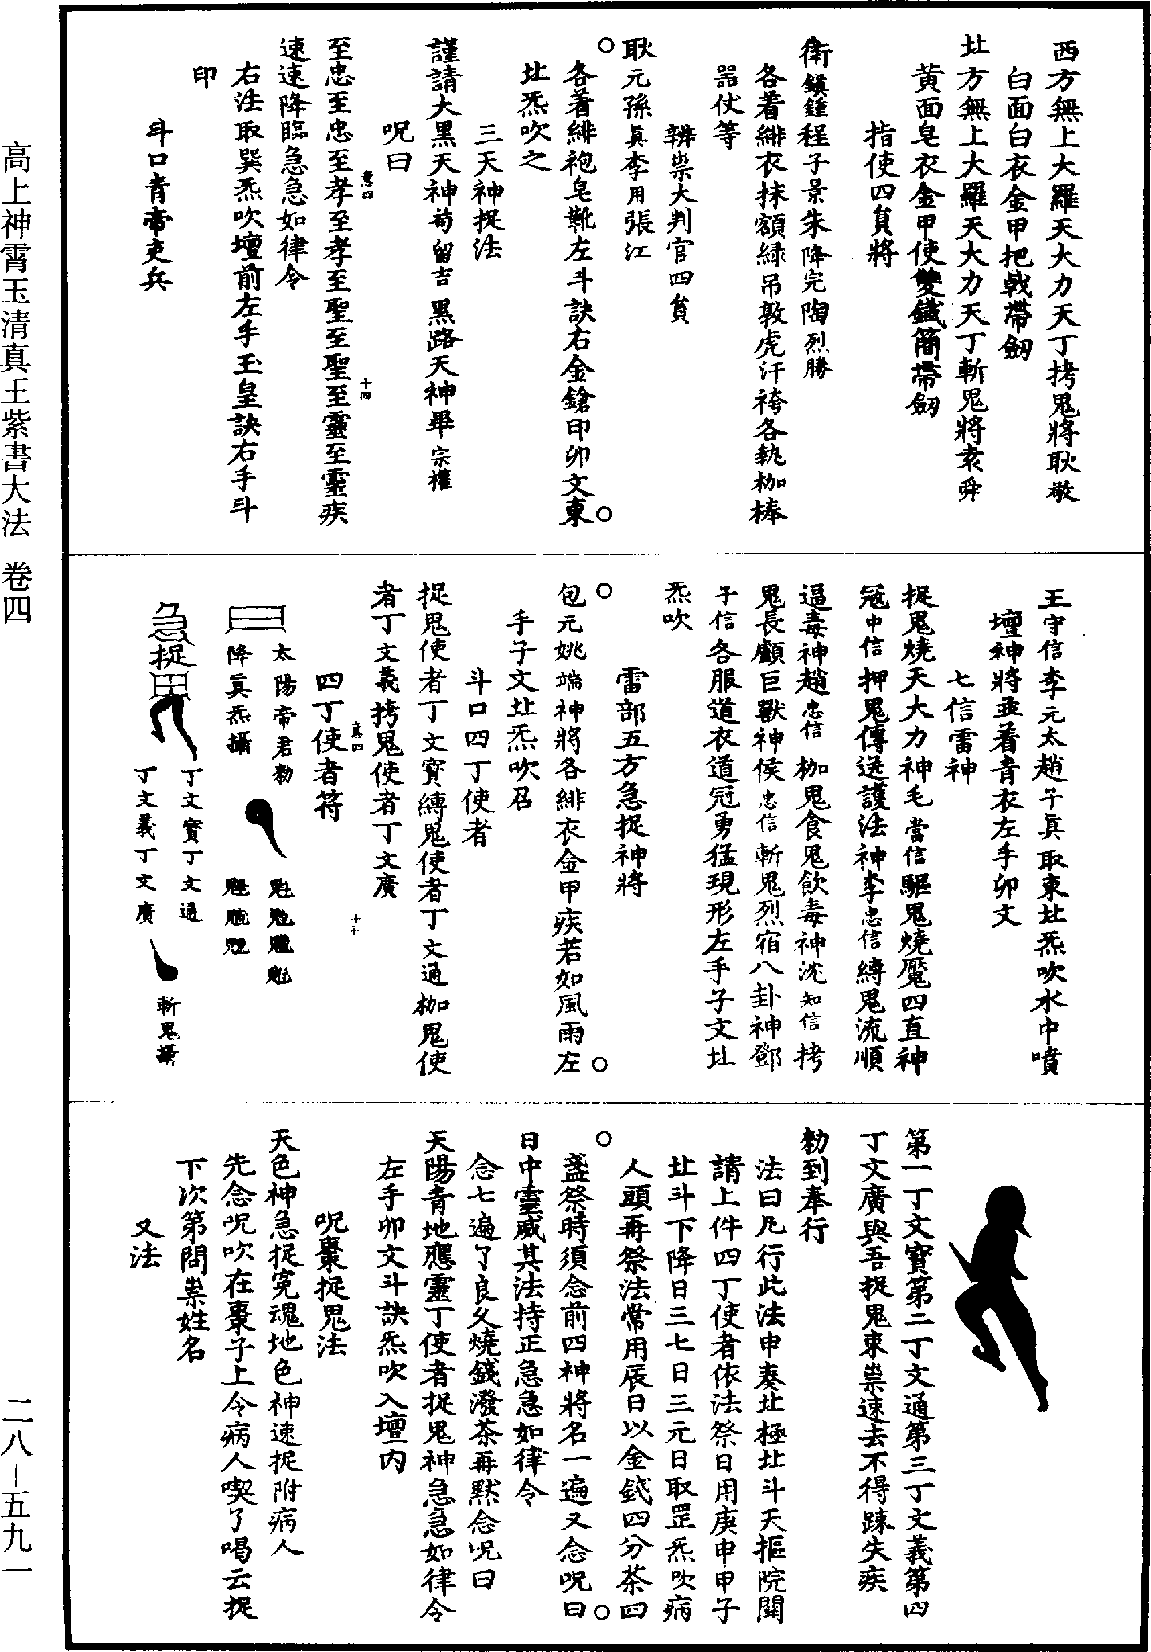 高上神霄玉清真王紫書大法 卷四
二八—五九一
西方無上大羅天大力天丁拷鬼將耿敬
白面白衣金甲把戟帶劒
北方無上大羅天大力天丁斬鬼將袁舜
黃面皂衣金甲使雙鐵簡帶劒
指使四員將
衛鎮鍾程子景朱降完陶烈勝
各着緋衣抹額綠吊敦虎汗袴各執枷棒
器仗等
辨祟大判官四員
耿元孫真李用張江
各着緋袍皂靴左斗訣右金鎗印卯文東
北炁吹之
三天神捉法
謹請大黑天神苟留吉黑路天神畢宗權
呪曰
至忠至忠至孝至孝至聖至聖至靈至靈疾
速速降臨急急如律令
右法取巽炁吹壇前左手玉皇訣右手斗
印
斗口青帝吏兵
王守信李元太趙子真取東北炁吹水中噴
壇神將並着青衣左手卯文
七信雷神
捉鬼燒天大力神毛當信驅鬼燒魘四直神
冠中信押鬼傳送護法神李忠信縛鬼流順
逼毒神趙忠信枷鬼食鬼飲毒神沈知信拷
鬼長顱巨獸神侯忠信斬鬼烈宿八卦神鄧
子信各服道衣道冠勇猛現形左手子文北
炁吹
雷部五方急捉神將
包元姚端神將各緋衣金甲疾若如風雨左
手子文北炁吹召
斗口四丁使者
捉鬼使者丁文寶縛鬼使者丁文通枷鬼使
者丁文義拷鬼使者丁文廣
四丁使者符
太陽帝君勑
降真炁攝
急捉
丁文寶丁文通
丁文義丁文廣
斬鬼攝
第一丁文寶第二丁文通第三丁文義第四
丁文廣與吾捉鬼來祟速去不得踈失疾
勑到奉行
法曰凡行此法申奏北極北斗天樞院關
請上件四丁使者依法祭日用庚申甲子
北斗下降日三七日三元日取罡炁吹病
人頭再祭法常用辰日以金錢四分茶四
盞祭時須念前四神將名一遍又念呪曰
日中靈威其法持正急急如律令
念七遍了良久燒錢潑茶再默念呪曰
天陽青地應靈丁使者捉鬼神急急如律令
左手卯文斗訣炁吹入壇內
呪棗捉鬼法
天色神急捉寃魂地色神速捉附病人
先念呪吹在棗子上令病人喫了喝云捉
下次第問祟姓名
又法